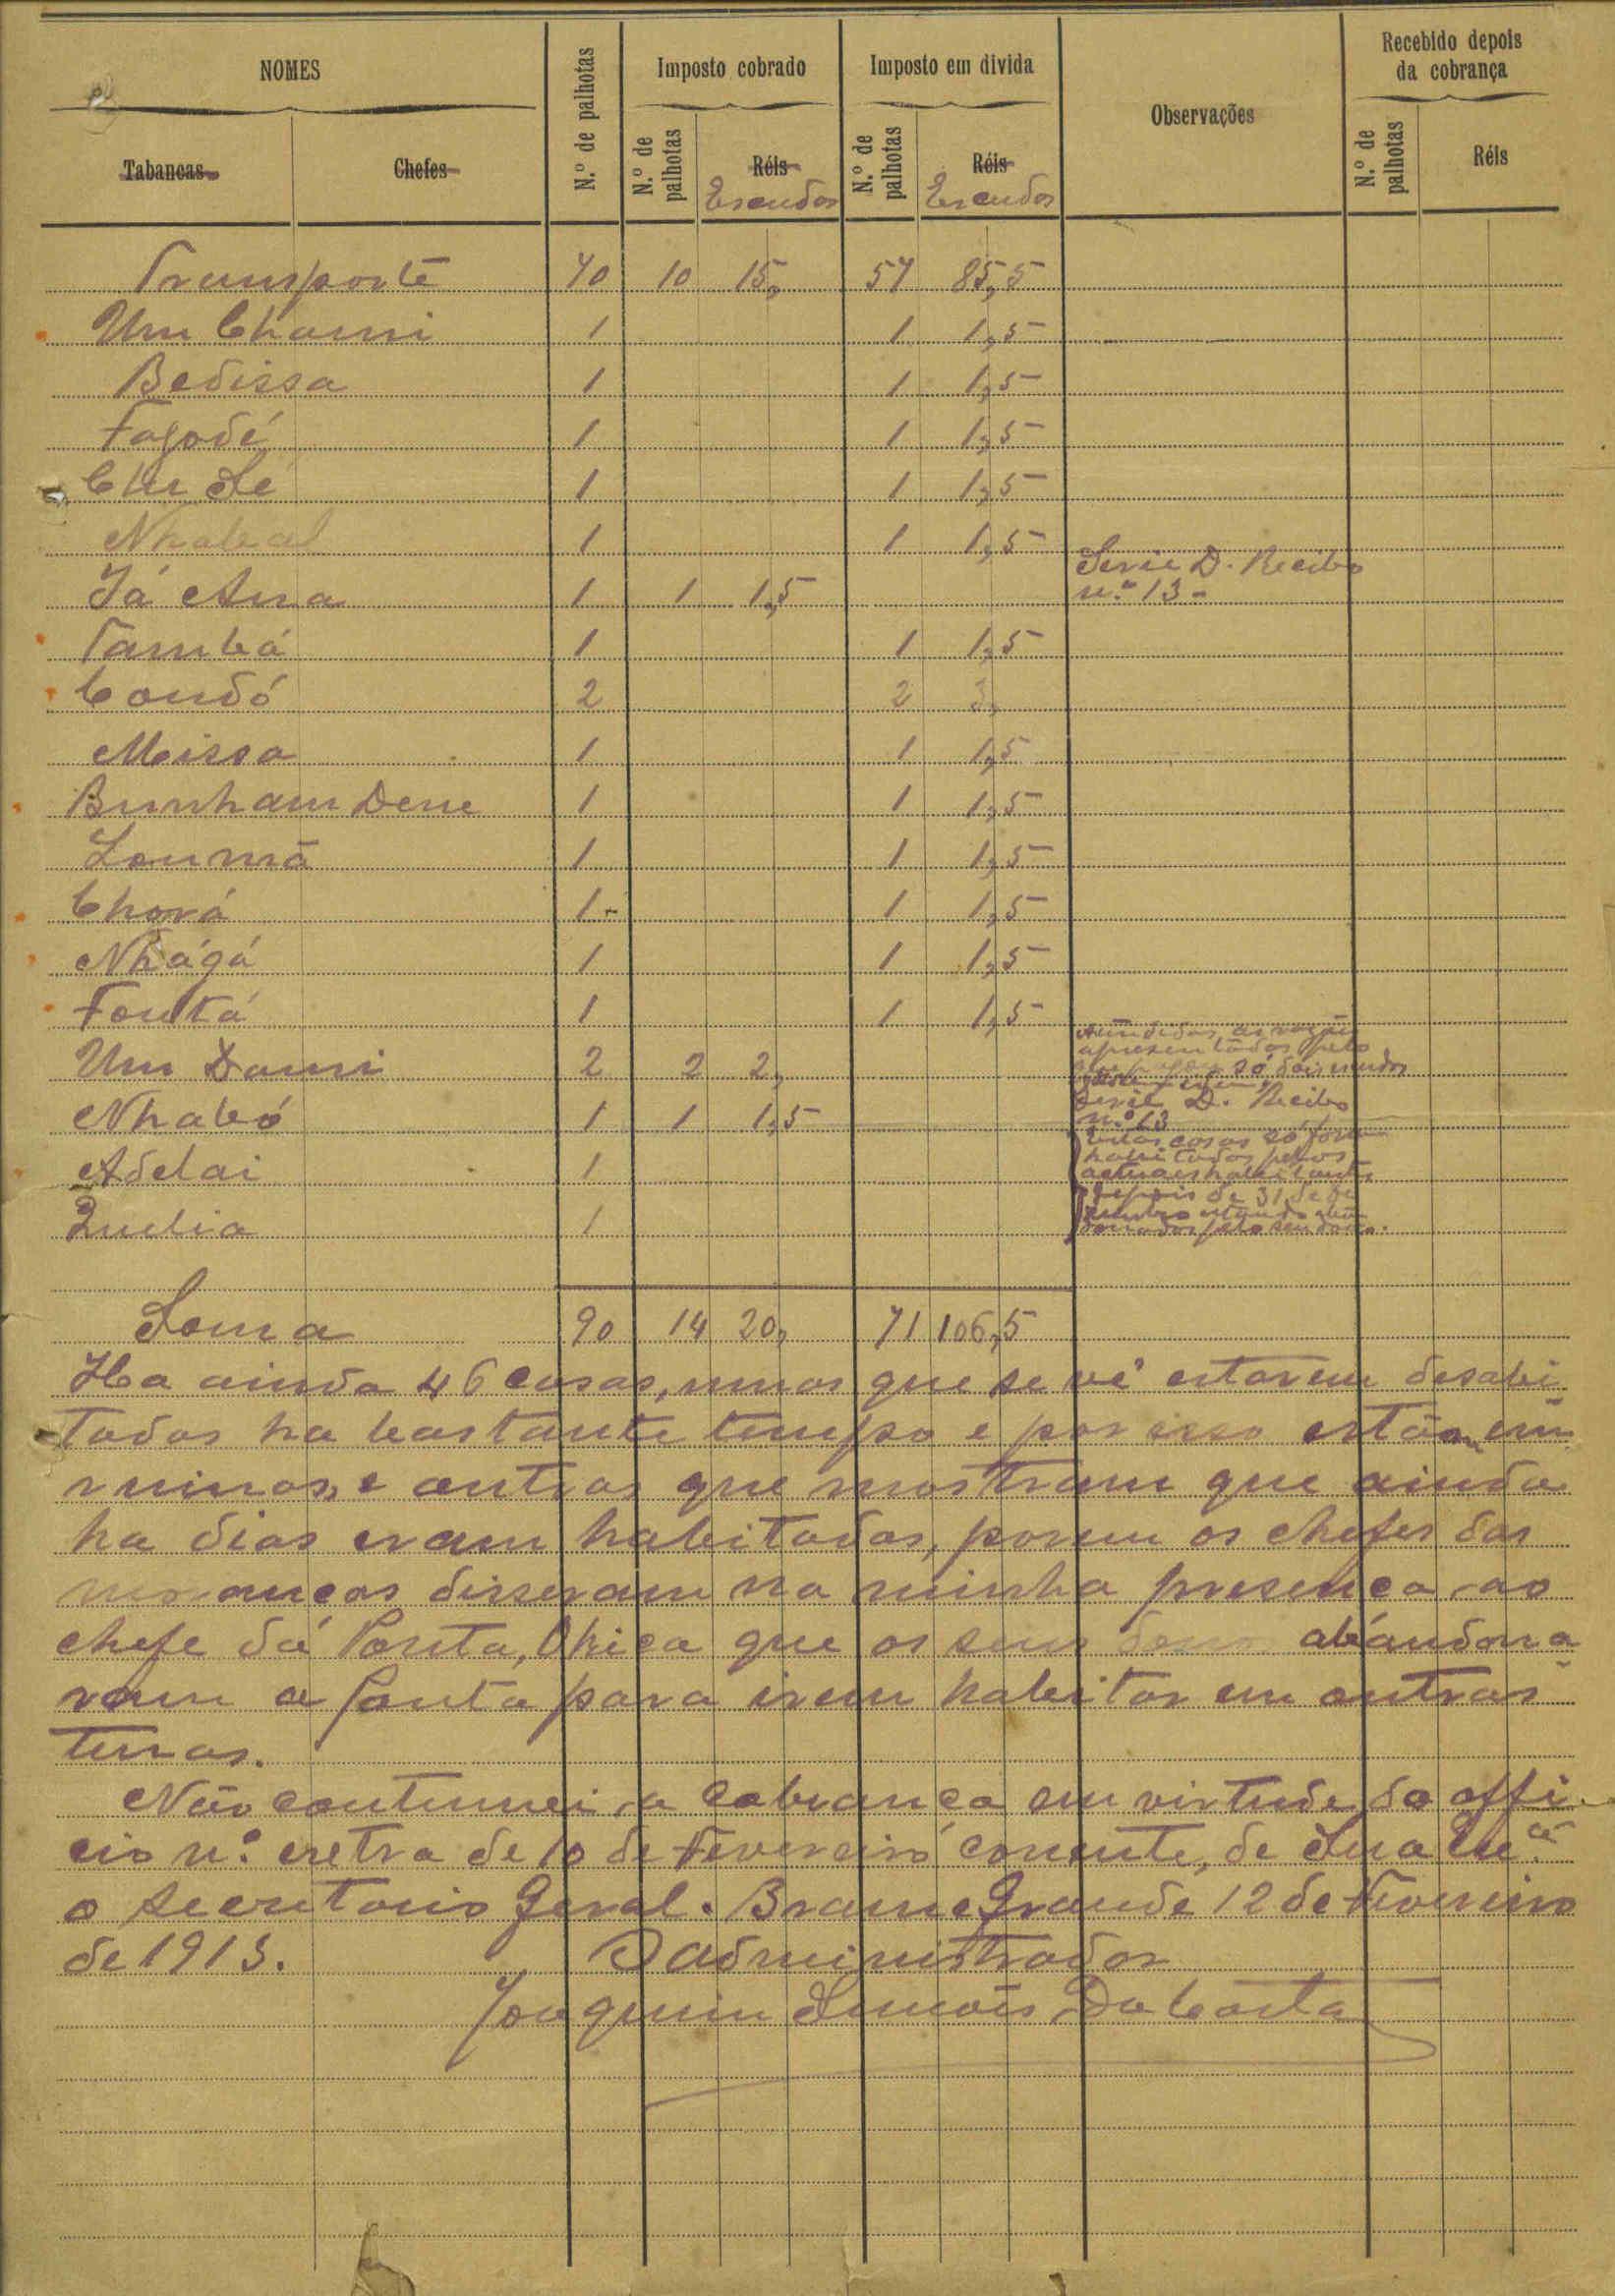 NOMES
N.º de palhotas
Imposto cobrado
Imposto em divida
Observações
Recebido depois da cobrança
Tabancas Chefes
N.º de palhotas Réis Escudos
N.º de palhotas Réis Escudos
N.º de palhotas Réis
Transporte 70 10 15, 57 85,5
Um Chami 1 1 1,5
Bedissa 1 1 1,5
Fogodé 1 1 1,5
Chu Lé 1 1 1,5
Nhabal 1 1 1,5
Já Ana 1 1 1,5 Serie D. Recibo nº 13-
Tambá 1 1 1,5
Condó 2 2 3,
Meissa 1 1 1,5
Bunham Dene 1 1 1,5
Loumã 1 1 1,5
Chorá 1- 1 1,5
Nhágá 1 1 1,5
Foutá 1 1 1,5
Um Dami 2 2 2, apresentadas pelo só dois escudos
Nhabó 1 1 1,5 Serie D. Recibo nº 13
Adelai 1 Estas casas só foram habitadas pelos actuaes habitantes
Quelia 1 depois de 31 de estando abandonadas pelo seu dono.
Soma 90 14 20, 71 106,5
Ha ainda 46 casas, umas que se vê estarem desabi
tadas ha bastante tempo e por isso estão em
ruinas, e outras que mostram que ainda
ha dias eram habitadas, porem os chefes das
moranças disseram na minha presença ao
chefe da Ponta, que os seus donos abandona
ram a Ponta para irem habitar em outras
terras.
Não continuei a cobrança em virtude do offi-
cio n.º extra de 10 de Fevereiro corrente, de Sua Exc.ª
o Secretario Geral. Brame Grande 12 de Fevereiro
de 1913. O administrador
Joaquim Simões Da Costa